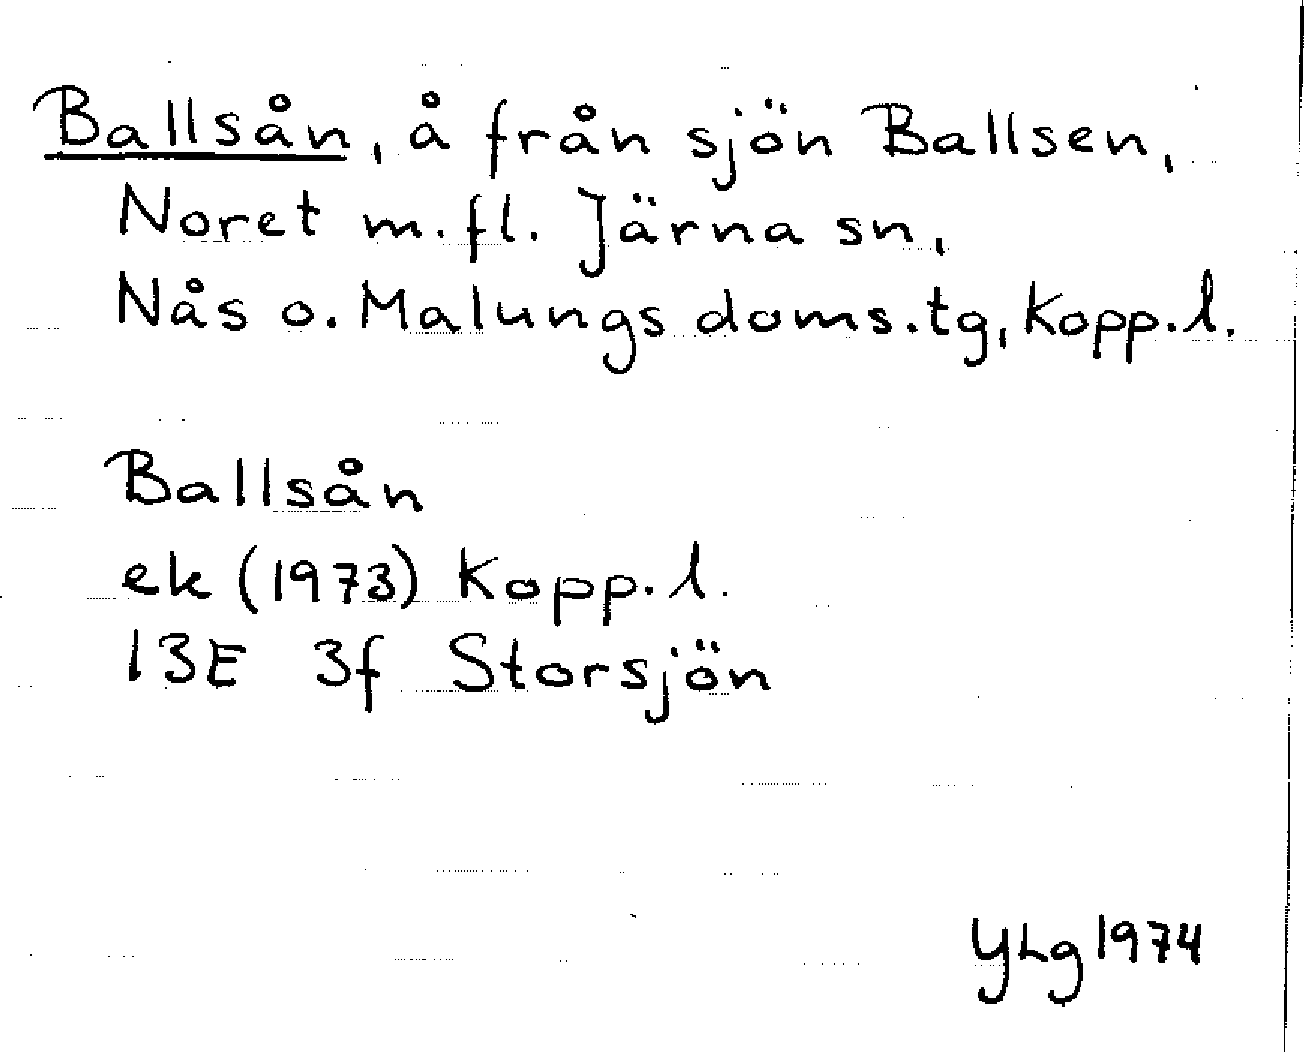 Ballsån, å från sjön Ballsen,
Noret m.fl. Järna sn,
Nås o. Malungs doms.tg, Kopp.l.
Ballsån
ek (1973) Kopp.l.
13E 3f Storsjön
YLg 1974